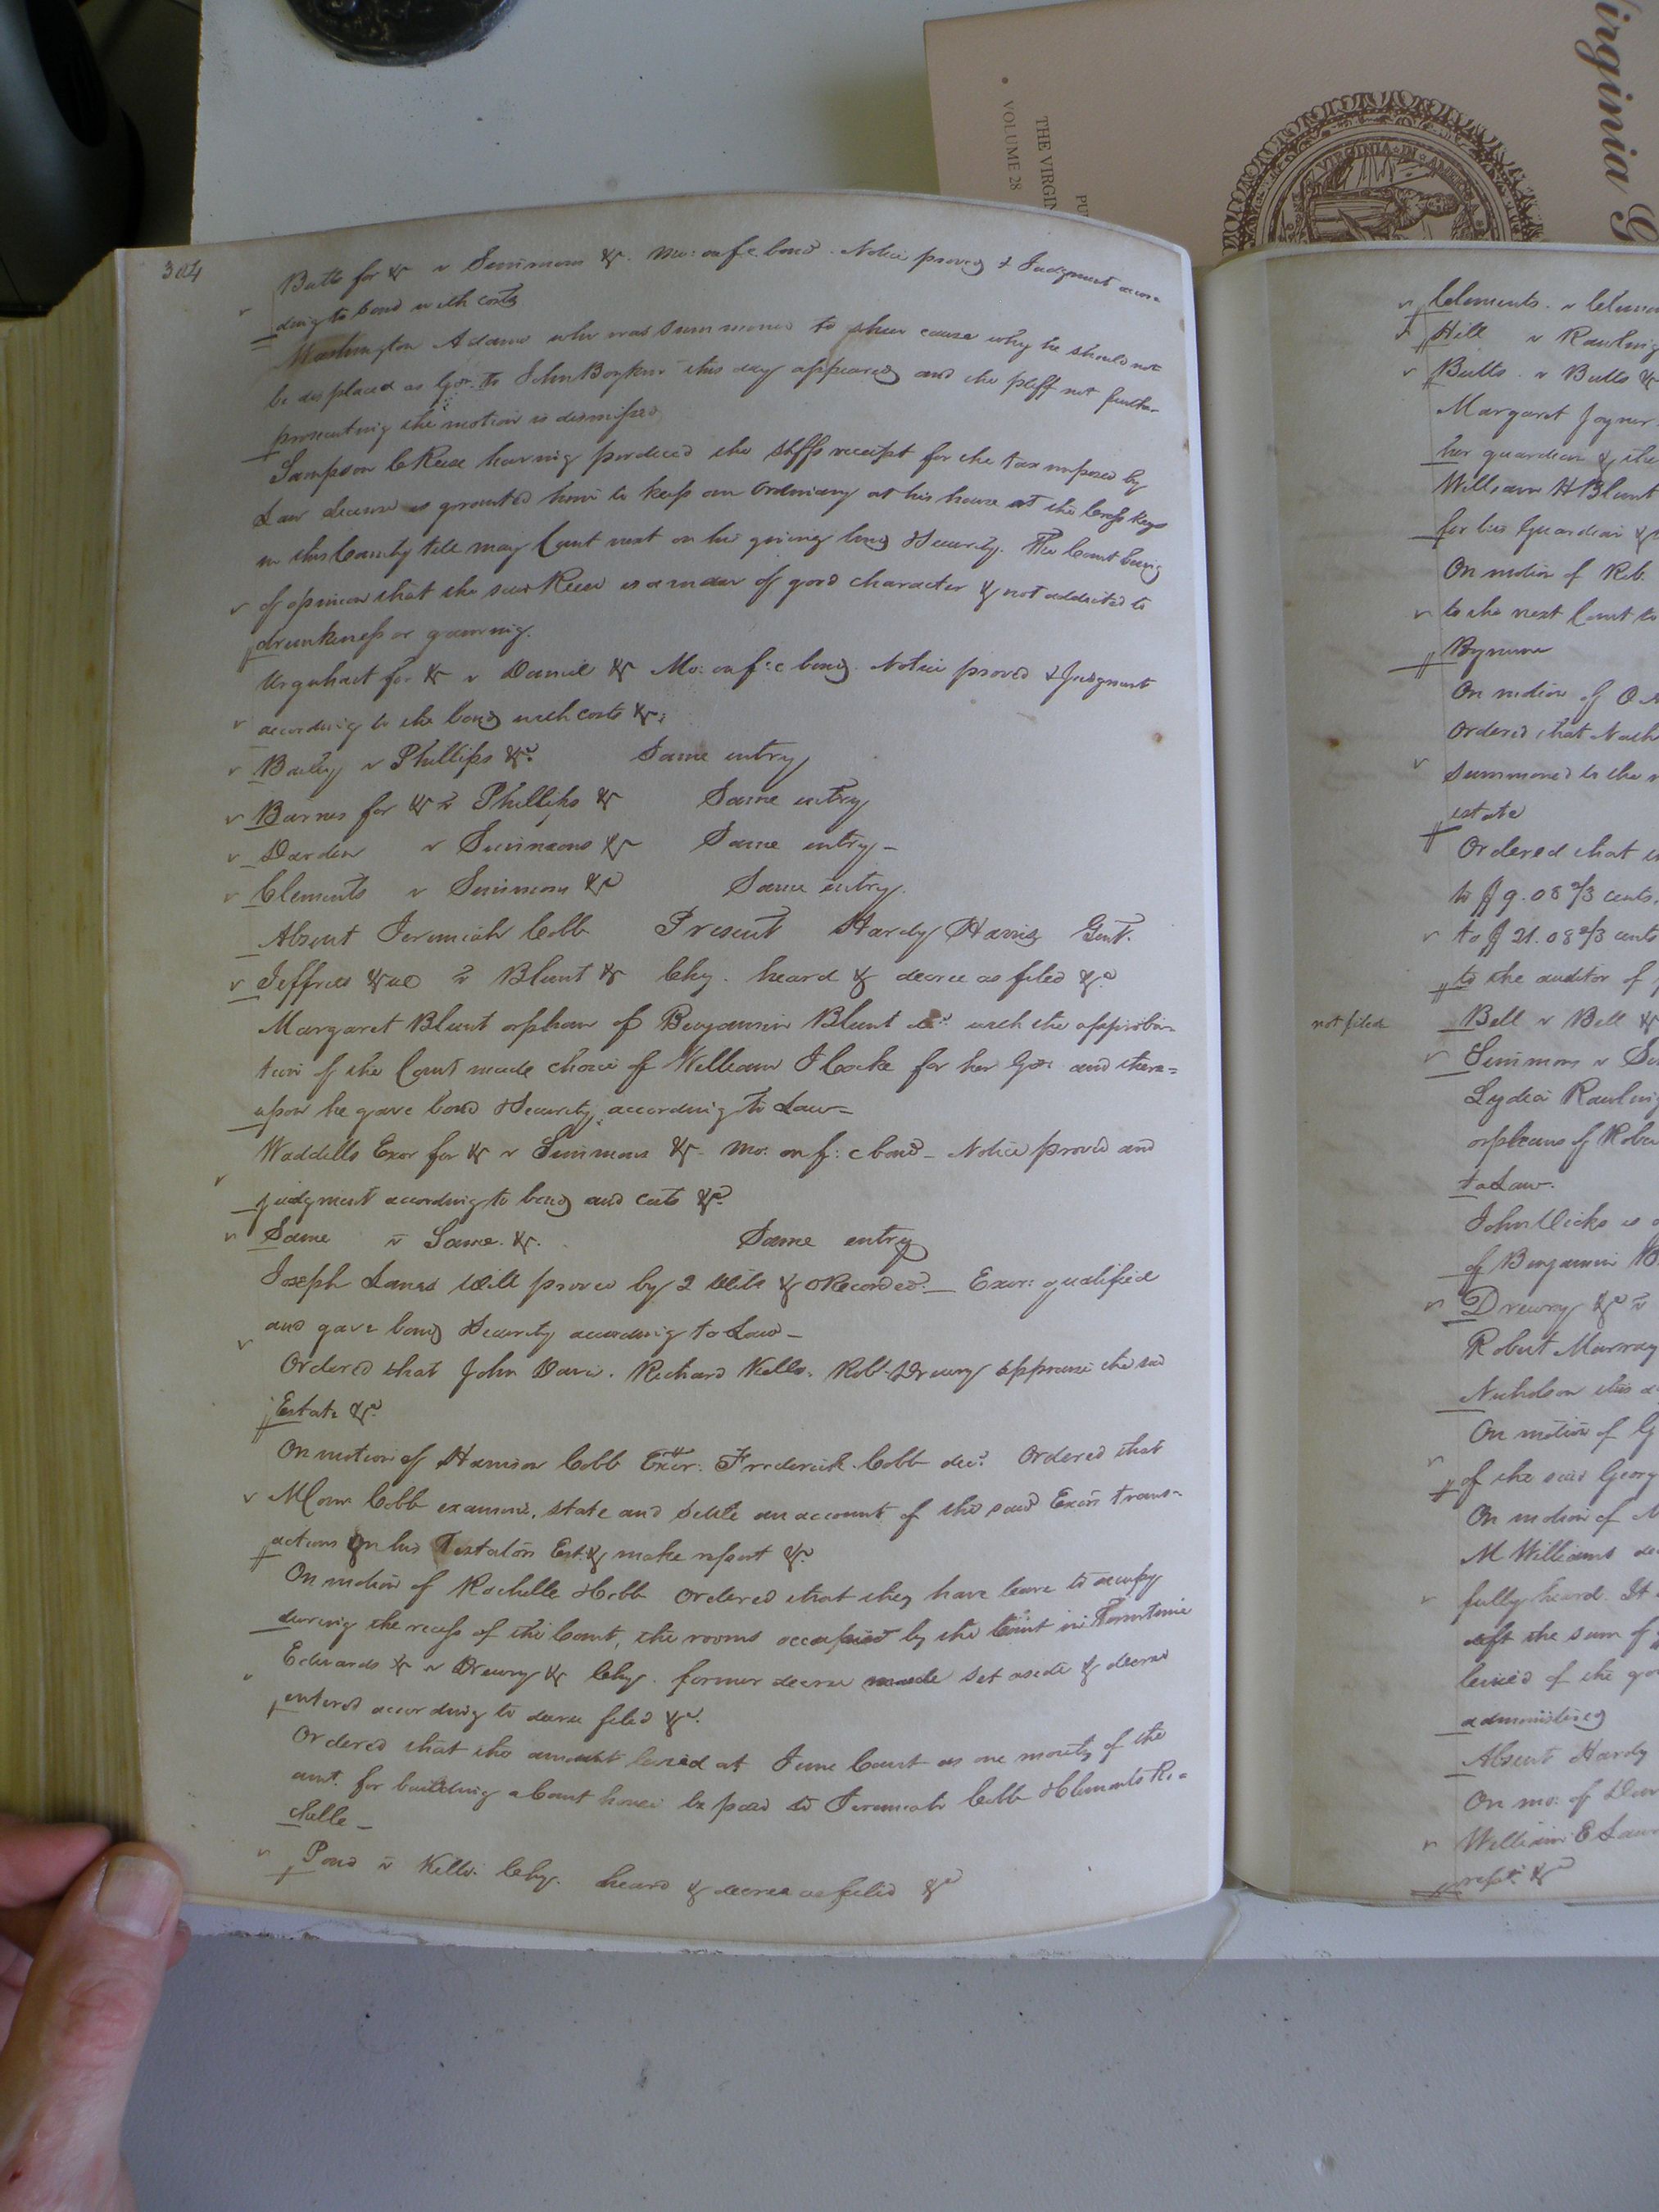 304
Butts for &c v Simmons &c. Mo: on f.c. bond. Notice proved & Judgment accor-
ding to bond with costs
Washington Adams who was summoned to shew cause why he should not
be displaced as Gdn. to John Boykin this day appeared and the pltff not further
prosecuting the motion is dismissed
Sampson C Reese having produced the Shffs receipt for the tax imposed by
Law License is granted him to keep an Ordinary at his house at the Cross Keys
in this County till may Court next on his giving bond & Security. The Court being
of opinion that the said Reese is a man of good character & not addicted to
drunkeness or gaming.
Urquhart for &c v Daniel &c Mo: on f:c bond. Notice proved & Judgment
according to the bond with costs &c:
Bailey v Phillips &c. Same entry
Barnes for &c v Phillips &c Same entry
Darden v Simmons &c Same entry-
Clements v Simmons &c Same entry.
Absent Jeremiah Cobb Present Hardy Harris Gent.
Jeffries &ux v Blunt &c Chy. heard & decree as filed &c
Margaret Blunt orphan of Benjamin Blunt dec. with the approba-
tion of the Court made choice of William J Cocke for her Gdn and there=
upon he gave bond & Security, according to Law-
Waddills Exor for &c v Simmons &c. Mo: on f:c bond - Notice proved and
judgment according to bond and costs &c
Same v Same. &c. Same entry
Joseph Lanes Will proved by 2 Wits & ORecorded. - Exor: qualified
and gave bond & Security according to Law-
Ordered that John Davis. Richard Kello. Robt Drewry appraise the said
Estate &c
On motion of Harrison Cobb Exor. Frederick Cobb dec. Ordered that
Cobb examine, state and settle an account of the said Exors trans-
actions on his Testators Est. & make report &c
On motion of Rochelle & Cobb Ordered that they have leave to occupy
during the recess of the Court, the rooms occupied by the Court in
Edwards &c v Drewry &c Chy. former decree made set aside & decree
entered according to decree filed &c.
Ordered that the amount levied at June Court as one moiety of the
amt. for building a Court house be paid to Jeremiah Cobb & Clements Ro=
chelle -
Pond v Kello. Chy. heard & decree as filed &c
Clements. v
Hill v Rawling
Butts. v Butts &
Margaret Joyner
her guardian & the
William H Blunt
for his Guardian &
On motion of Rob.
to the next Court to
Bynum
On motion of
Ordered that
summoned to the
estate
Ordered that
to $9.08 2/3 cents.
to $21.08 2/3 cents
to the auditor of
not filed
Bell v Bell &
Simmons v
Lydia Rawling
orphans of Rober
to Law.
John Vicks is
of Benjamin
Drewry &c v
Robert Murray
Nicholson this
On motion of
of the said Georg
On motion of
M Williams
fully heard. It
deft the sum of
levied of the
administered
Absent Hardy
On mo: of
William E
report &c
THE VIRGIN
VOLUME 28
PU
irginia G
VIRGINIA IN AMER